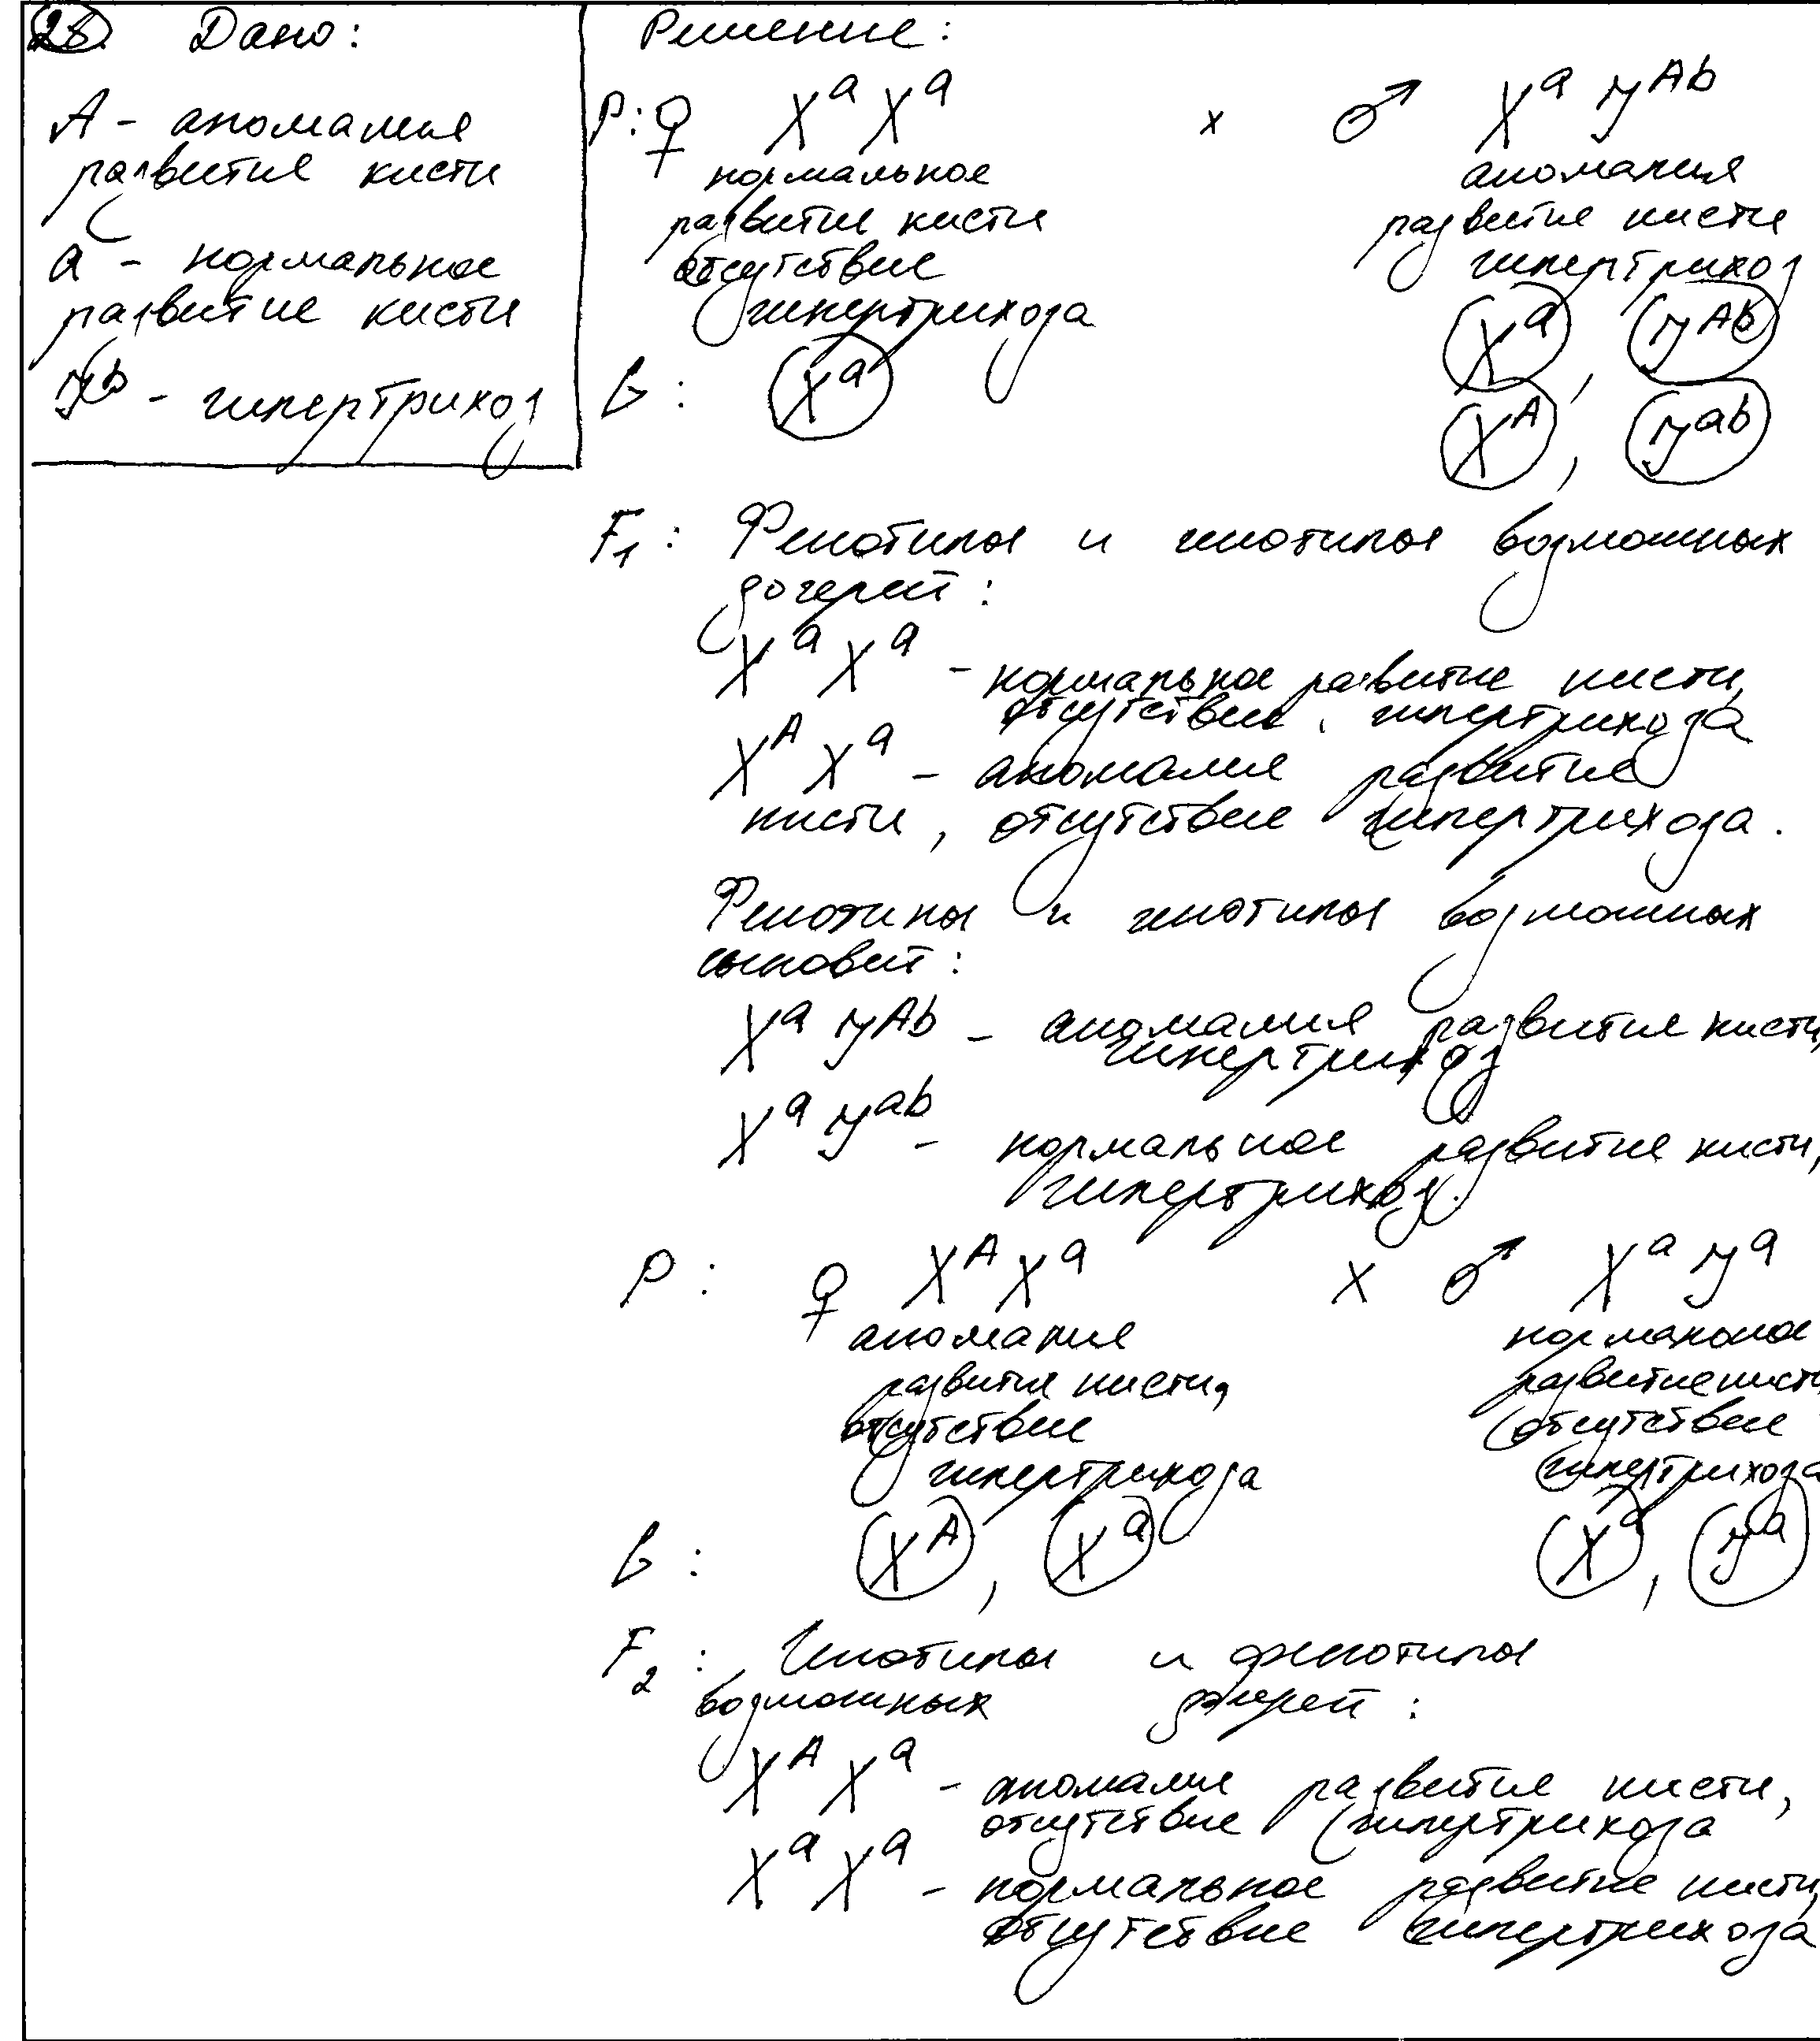 28. Дано:
А - аномалия
развития кисти
а - нормальное
развитие кисти
Yᵇ - гипертрихоз
Решение:
P: ♀ XᵃXᵃ x ♂ XᵃYᴬᵇ
нормальное аномалия
развитие кисти развитие кисти
отсутствие гипертрихоз
гипертрихоза
G: Xᵃ Xᵃ, Yᴬᵇ
Xᴬ, Yᵃᵇ
F₁: Фенотипы и генотипы возможных
дочерей:
XᵃXᵃ - нормальное развитие кисти,
отсутствие гипертрихоза
XᴬXᵃ - аномалия развития
кисти, отсутствие гипертрихоза.
Фенотипы и генотипы возможных
сыновей:
XᵃYᴬᵇ - аномалия развития кисти,
гипертрихоз
XᵃYᵃᵇ - нормальное развитие кисти,
гипертрихоз.
P: ♀ XᴬXᵃ x ♂ XᵃYᵃ
аномалия нормальное
развития кисти, развитие кисти
отсутствие отсутствие
гипертрихоза гипертрихоза
G: Xᴬ, Xᵃ Xᵃ, Yᵃ
F₂: Генотипы и фенотипы
возможных дочерей:
XᴬXᵃ - аномалия развития кисти,
отсутствие гипертрихоза
XᵃXᵃ - нормальное развитие кисти,
отсутствие гипертрихоза